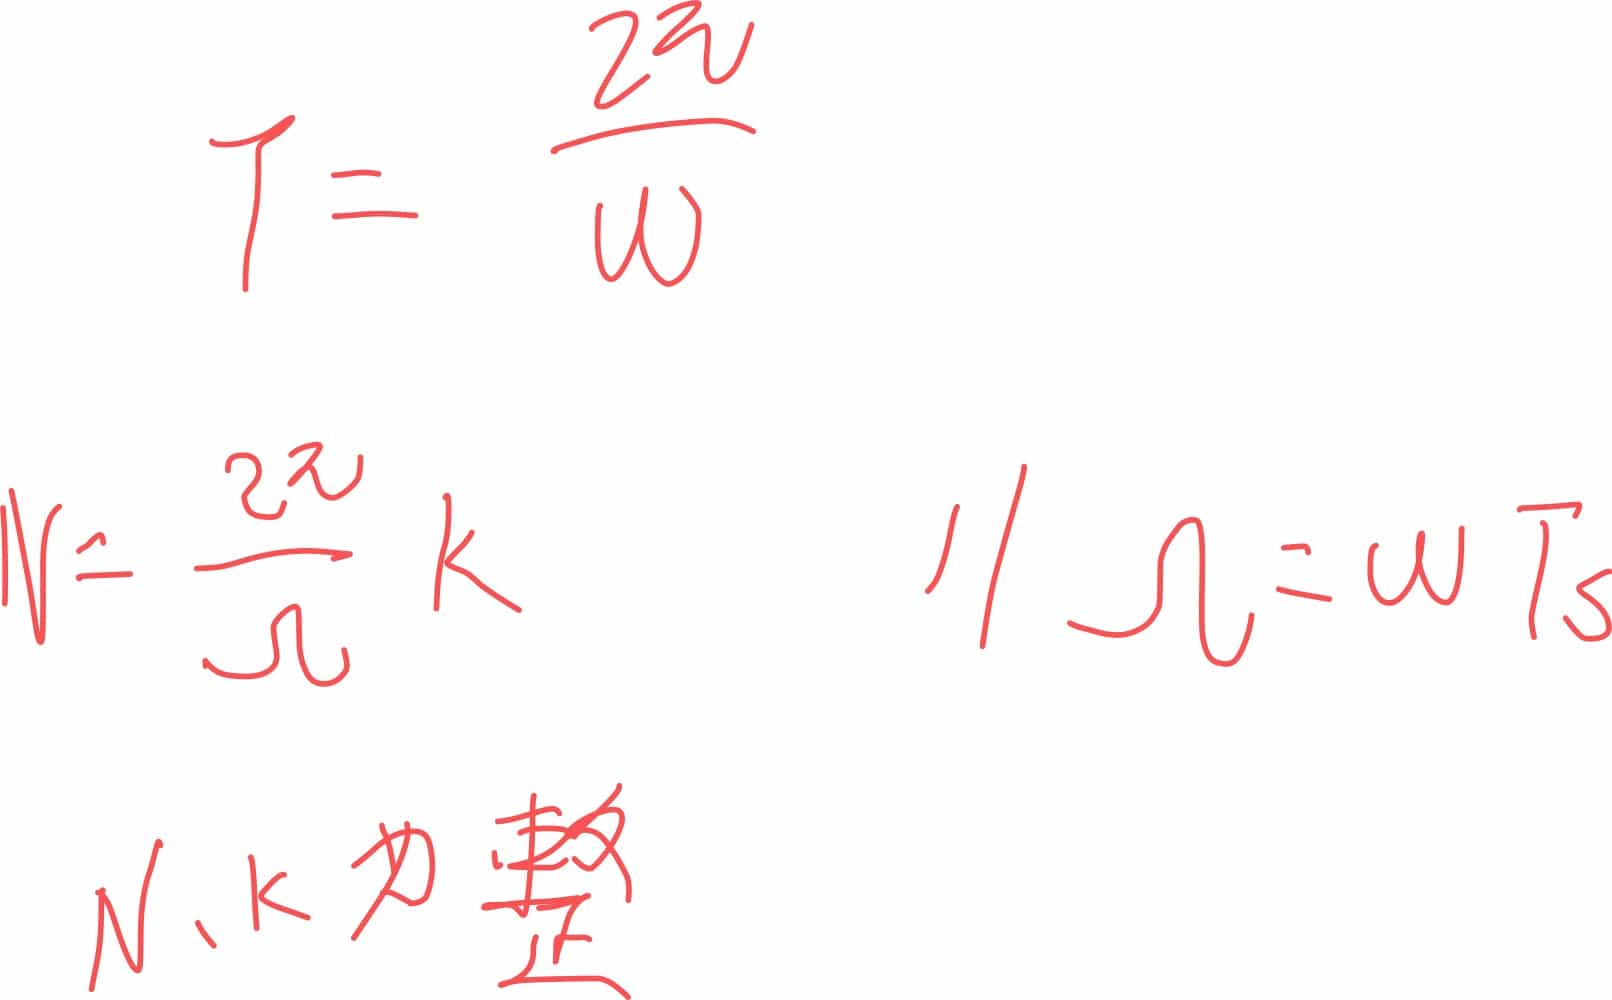 T = 2π/ω
N = 2π/Ω k // Ω = ωTs
N、k为整